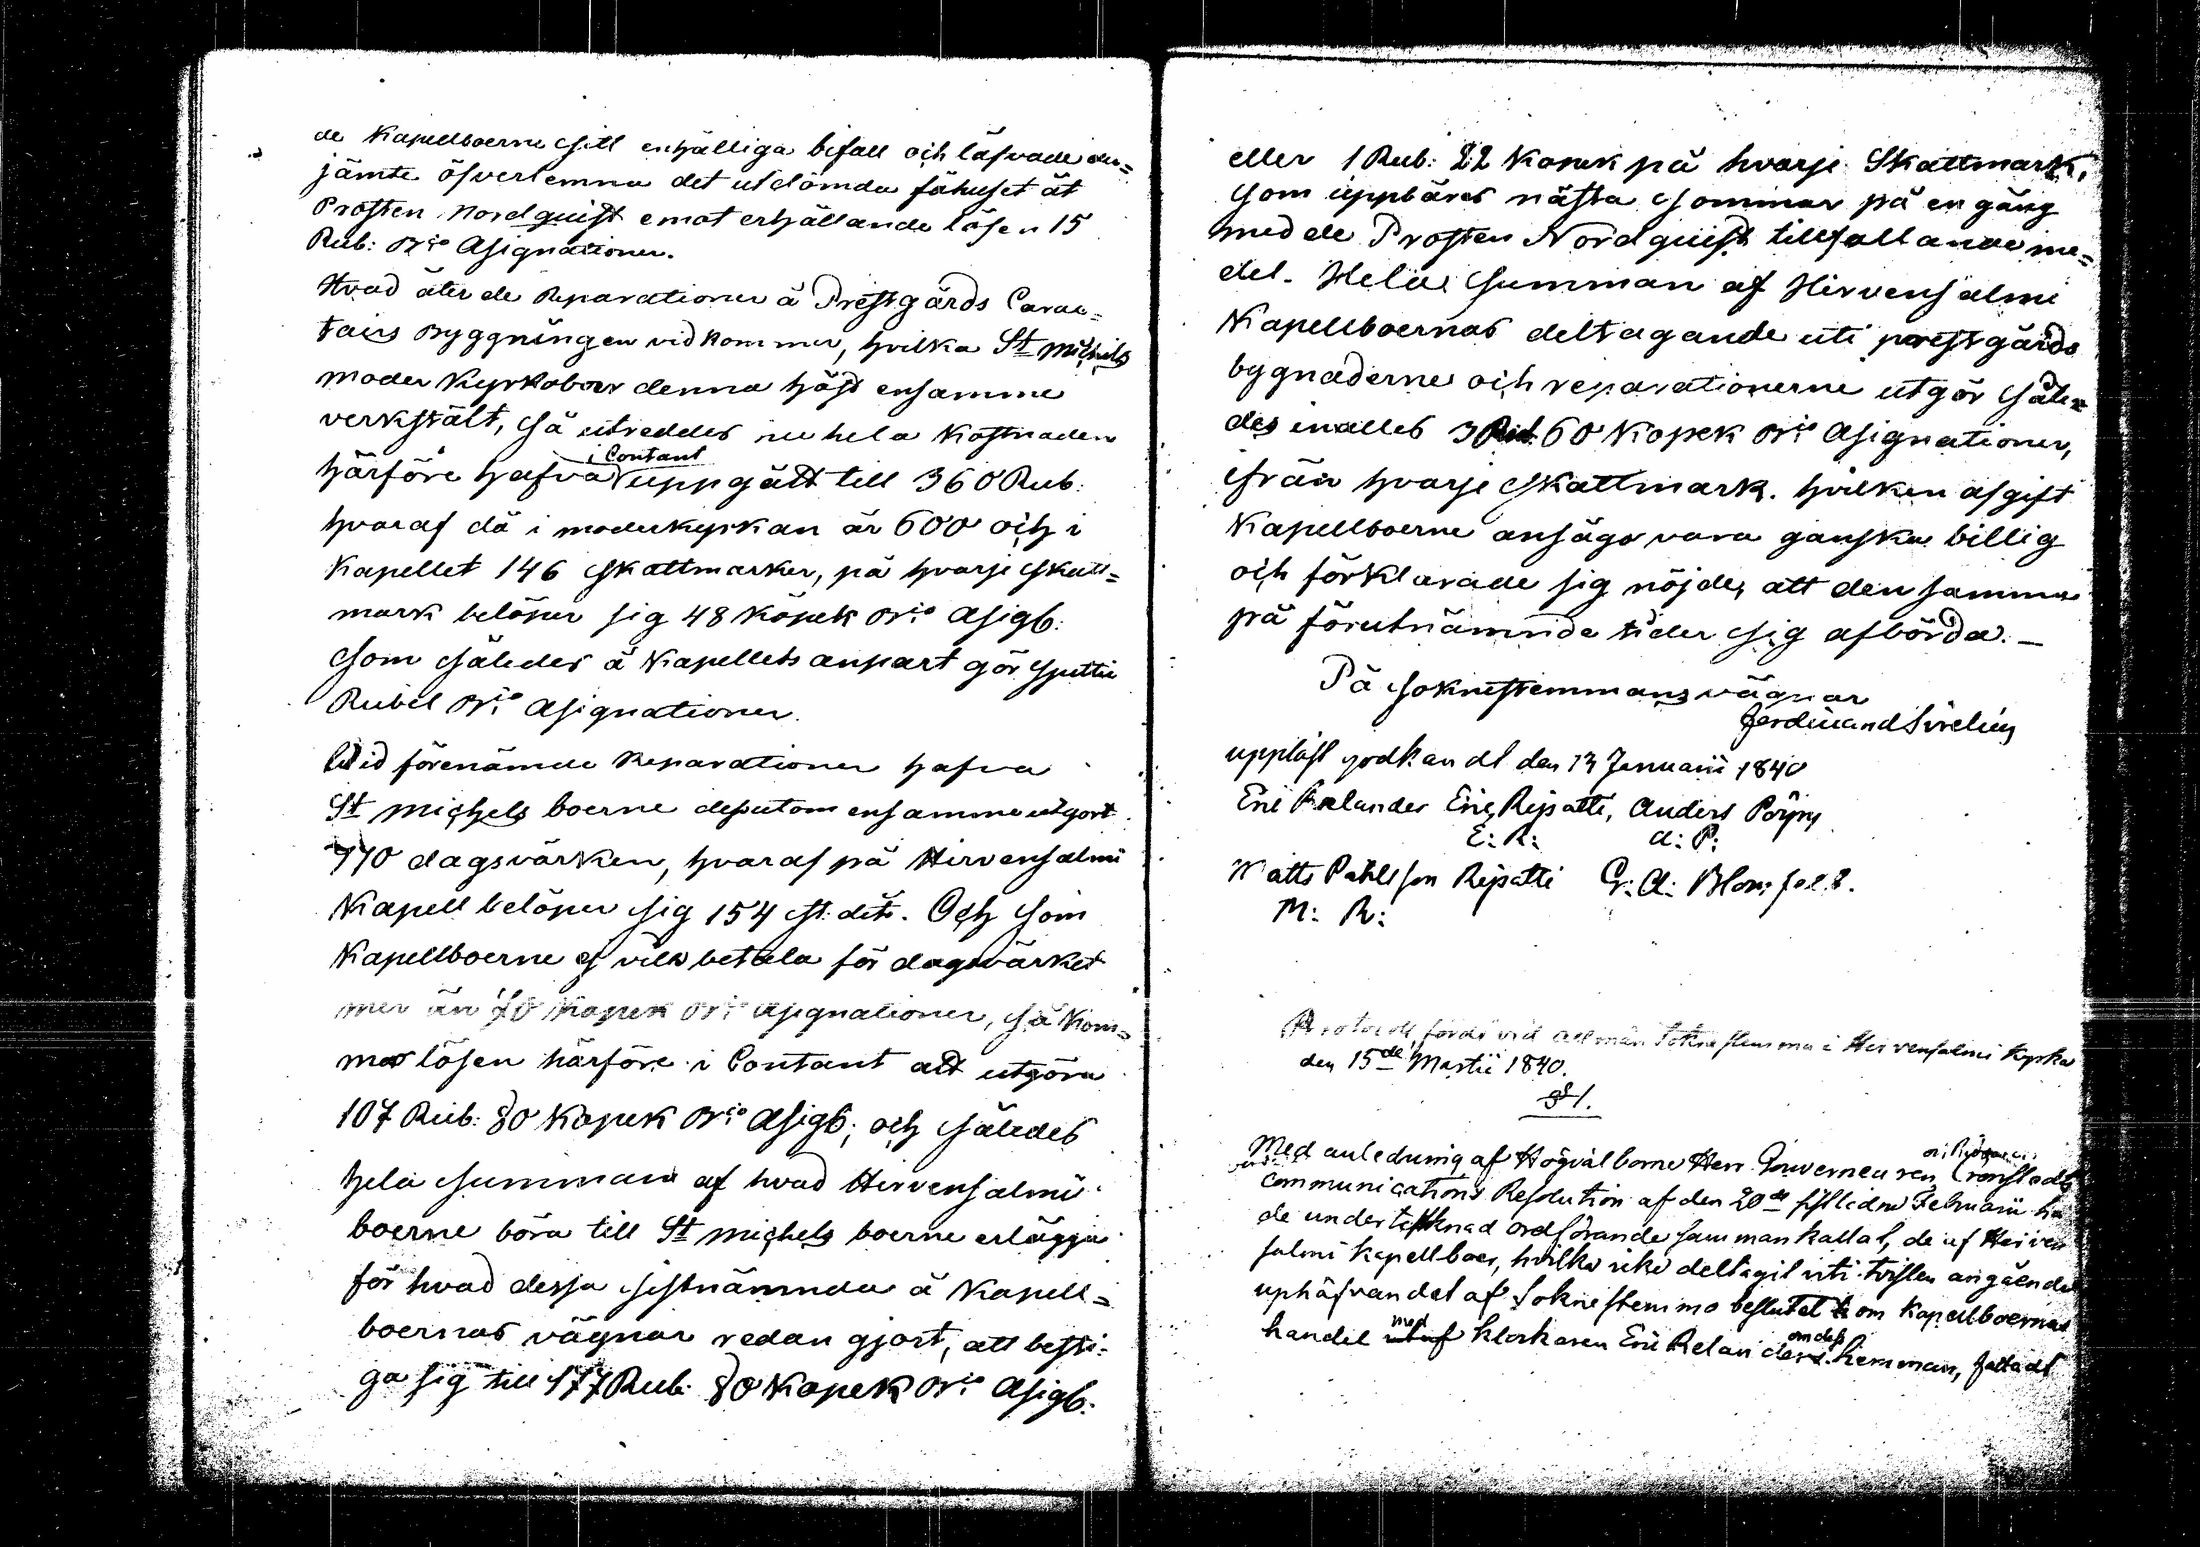 de Kapellboerne sitt enhälliga bifall och låfvade der=
jämte öfverlemna det utdömda fähuset åt
Prosten Nordquist emot erhållande lösen 15
Rub: Bco Assignationer.
Hvad åter de Reparationer å Prestgårds Carac=
tairs Byggningen vidkommer, hvilka St Michels
moder kyrkoboer denna höst ensamme
verkstält, så utreddes nu hela kostnaden
härföre hafva i Contant uppgått till 360 Rub:
hvaraf då i moderkyrkan är 600 och i
Kapellet 146 skattmarker, på hvarje skatt=
mark belöper sig 48 kopek Bco Assig:
som således å Kapellets anpart gör sjuttio
Rubel Bco Assignationer.
Vid förenämde Reparationer hafva
St Michels boerne dessutom ensamme utgjort
770 dagsvärken, hvaraf på Hirvensalmi
Kapell belöper sig 154 st. dito. Och som
Kapellboerne ej vela betala för dagsvärket
mer än 70 Kopek Bco Assignationer, så kom=
mer lösen härföre i Contant att utgöra
107 Rub: 80 Kopek Bco Assig; och således
hela summan af hvad Hirvensalmi
boerne böra till St Michels boerne erlägga
för hvad dessa sistnämnda å Kapell=
boernas vägnar redan gjort, att besti=
ga sig till 177 Rub: 80 Kopek Bco Assig:
eller 1 Rub: 22 Kopek på hvarje Skattmark,
som uppbäres nästa sommar på en gång
med de Prosten Nordquist tillfallande me=
del. Hela summan af Hirvensalmi
Kapellboernas deltagande uti prestgårds
bygnaderne och reparationerne utgör såle=
des inalles 3 Rub. 60 Kopek Bco Assignationer,
ifrån hvarje skattmark. hvilken afgift
Kapellboerne ansågo vara ganska billig
och förklarade sig nöjde, att densamma
på förutnämnde tider sig afbörda. —
På Soknestemmans vägnar
Ferdinand Sirelius
uppläst godkändt den 13 Januarii 1840
Eric Relander Eric Ripatti, Anders Pöyry
E: R: A: P:
Matts Påhlsson Ripatti G: A: Blomfelt.
M: R:
Protocoll, fördt vid allmän Sokne stemma i Hirvensalmi Kyrka
den 15de Martii 1840.
§ 1.
Med anledning af Högvälborne Herr Gouverneuren Cronstedts
communications Resolution af den 20de sistlidne Februarii ha
de undertecknad ordförande sammankallat, de af Hirven
salmi kapellboer, hvilka icke deltagit uti tvisten angående
uphäfvandet af Soknestemmo beslutet om Kapellboernas
handel med klockaren Eric Relander om dess hemman, fattadt